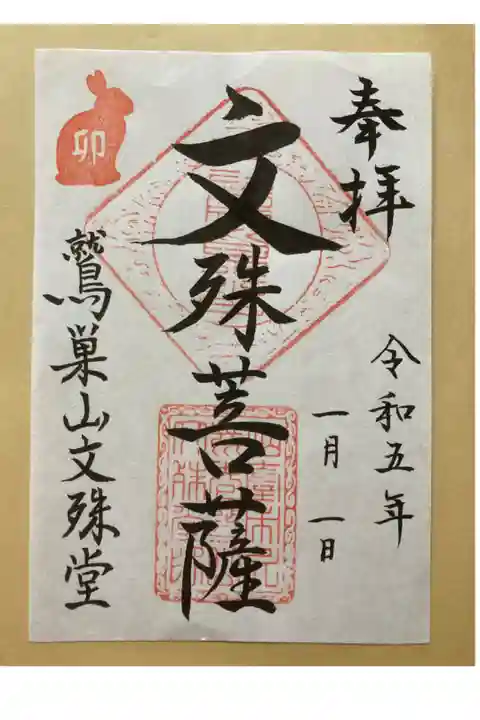 奉拝
令和五年
一月一日
文殊菩薩
卯
鷲巣山文殊堂